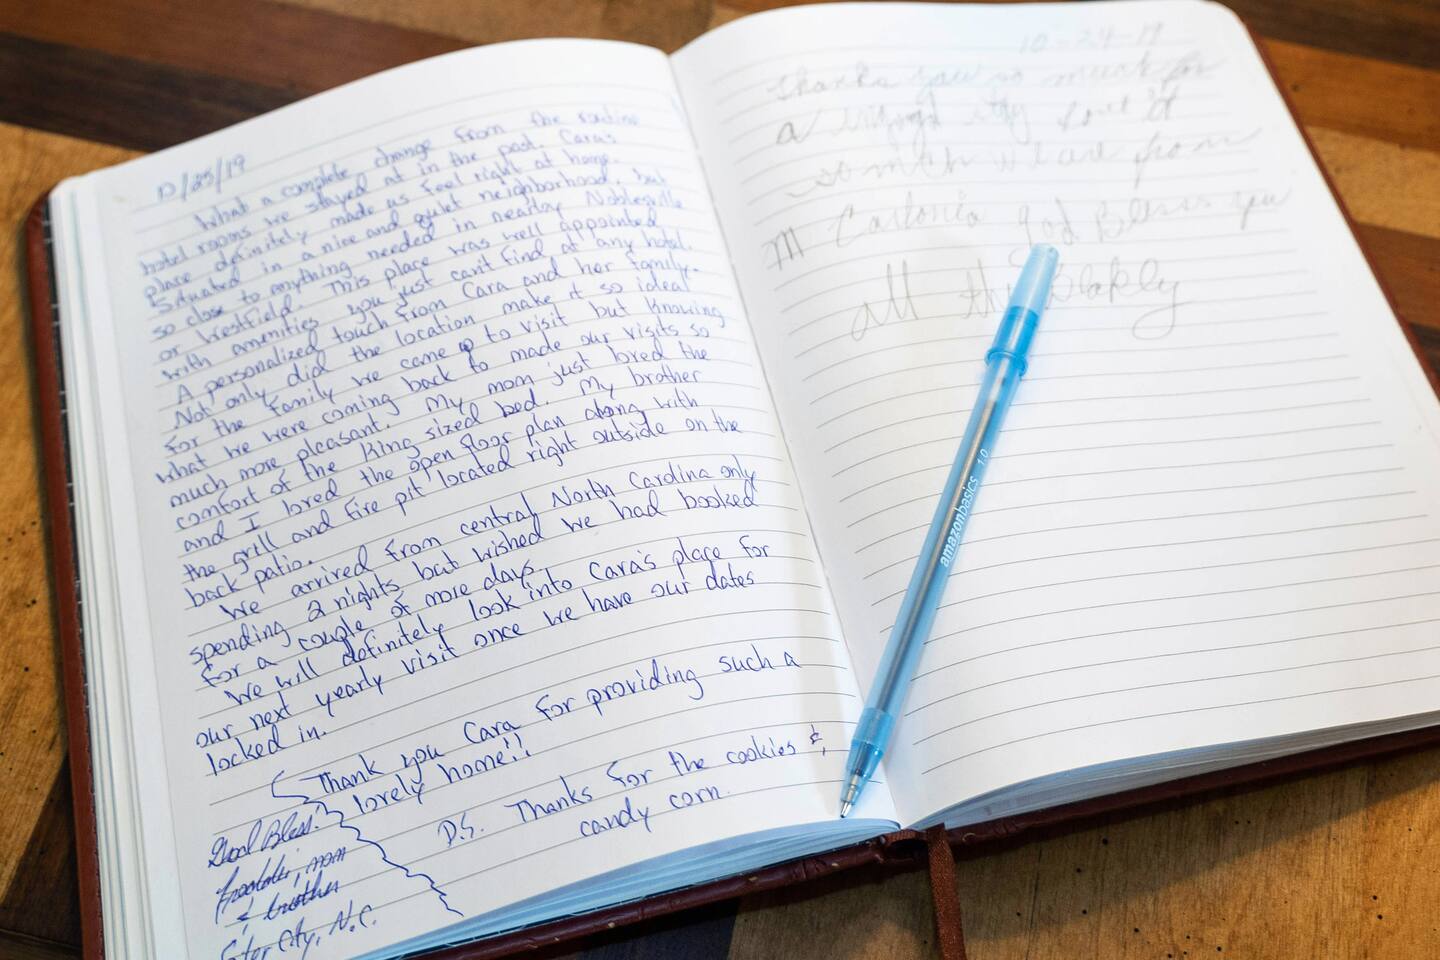 10/25/19
What a complete change from the routine
hotel rooms we stayed at in the past. Cara's
place definitely made us feel right at home.
Situated in a nice and quiet neighborhood, but
so close to anything needed in nearby Noblesville
or Westfield. This place was well appointed
with amenities you just can't find at any hotel.
A personalized touch from Cara and her family.
Not only did the location make it so ideal
for the family we came to visit but knowing
what we were coming back to made our visits so
much more pleasant. My mom just loved the
comfort of the King sized bed. My brother
and I loved the open floor plan along with
the grill and fire pit located right outside on the
back patio.
We arrived from central North Carolina only
spending 2 nights but wished we had booked
for a couple of more days.
We will definitely look into Cara's place for
our next yearly visit once we have our dates
locked in.
Thank you Cara for providing such a
lovely home!!
God Bless!
mom
& brother
City, N.C.
P.S. Thanks for the cookies &
candy corn.
10-24-19
Thanks you so much for
a
so much we are from
God Bless you
all the Blakly
amazonbasics 1.0